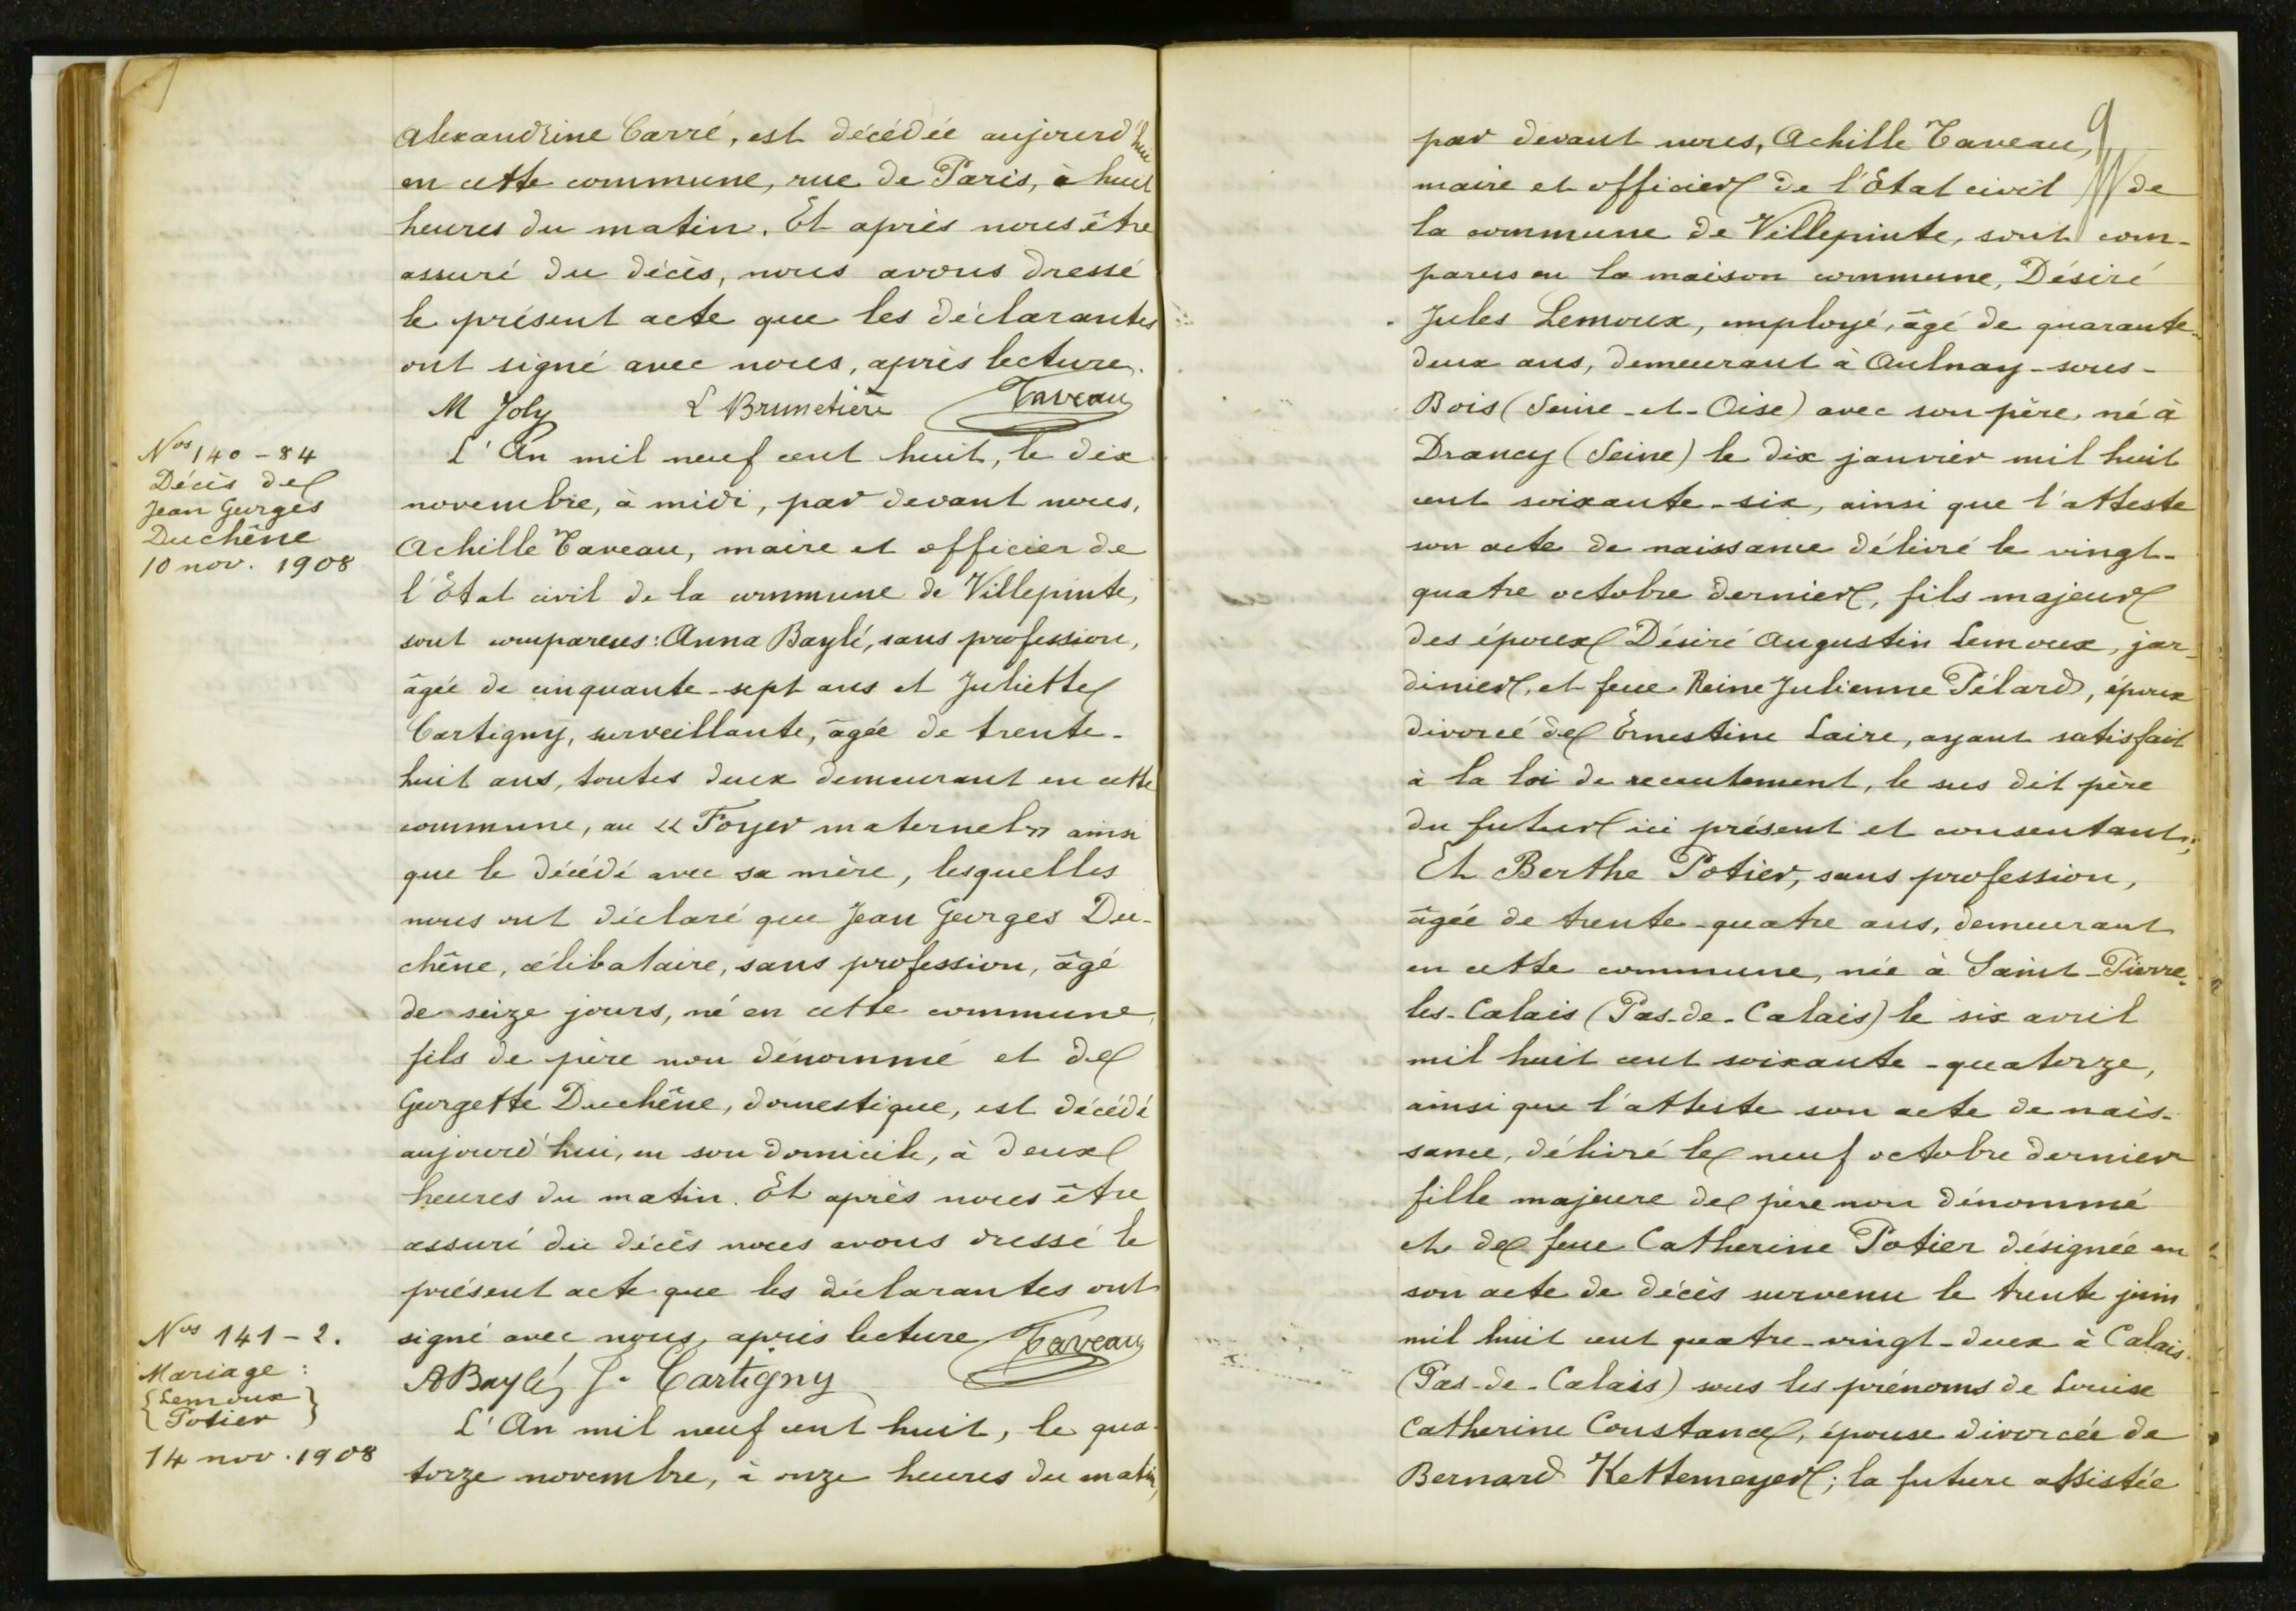 Alexandrine Carré, est décédée aujourd'hui
en cette commune, rue de Paris, à huit
heures du matin. Et après nous être
assuré du décès, nous avons dressé
le présent acte que les déclarantes
ont signé avec nous, après lecture.
M Joly L Brunetière Taveau
Nos 140 - 84
Décès de
Jean Georges
Duchêne
10 nov. 1908
L'An mil neuf cent huit, le dix
novembre, à midi, par devant nous,
Achille Taveau, maire et officier de
l'Etat civil de la commune de Villepinte,
sont comparues : Anna Baylé, sans profession,
âgée de cinquante-sept ans et Juliette
Cartigny, surveillante, âgée de trente-
huit ans, toutes deux demeurant en cette
commune, au « Foyer maternel » ainsi
que le décédé avec sa mère, lesquelles
nous ont déclaré que Jean Georges Du-
chêne, célibataire, sans profession, âgé
de seize jours, né en cette commune,
fils de père non dénommé et de
Georgette Duchêne, domestique, est décédé
aujourd'hui, en son domicile, à deux
heures du matin. Et après nous être
assuré du décès nous avons dressé le
présent acte que les déclarantes ont
signé avec nous, après lecture Taveau
A Baylé J. Cartigny
Nos 141 - 2.
Mariage :
{Lemoux}
{Potier}
14 nov. 1908
L'An mil neuf cent huit, le qua-
torze novembre, à onze heures du matin,
9
par devant nous, Achille Taveau,
maire et officier de l'Etat civil de
la commune de Villepinte, sont com-
parus en la maison commune, Désiré
Jules Lemoux, employé, âgé de quarante-
deux ans, demeurant à Aulnay-sous-
Bois (Seine-et-Oise) avec son père, né à
Drancy (Seine) le dix janvier mil huit
cent soixante-six, ainsi que l'atteste
son acte de naissance délivré le vingt-
quatre octobre dernier, fils majeur
des époux Désiré Augustin Lemoux, jar-
dinier, et feue Reine Julienne Pélard, époux
divorcé de Ernestine Laire, ayant satisfait
à la loi de recrutement, le sus dit père
du futur ici présent et consentant ;
Et Berthe Potier, sans profession,
âgée de trente-quatre ans, demeurant
en cette commune, née à Saint-Pierre-
les-Calais (Pas-de-Calais) le six avril
mil huit cent soixante-quatorze,
ainsi que l'atteste son acte de nais-
sance, délivré le neuf octobre dernier
fille majeure de père non dénommé
et de feue Catherine Potier désignée en
son acte de décès survenu le trente juin
mil huit cent quatre-vingt-deux à Calais
(Pas-de-Calais) sous les prénoms de Louise
Catherine Constance, épouse divorcée de
Bernard Kettemeyer ; la future assistée